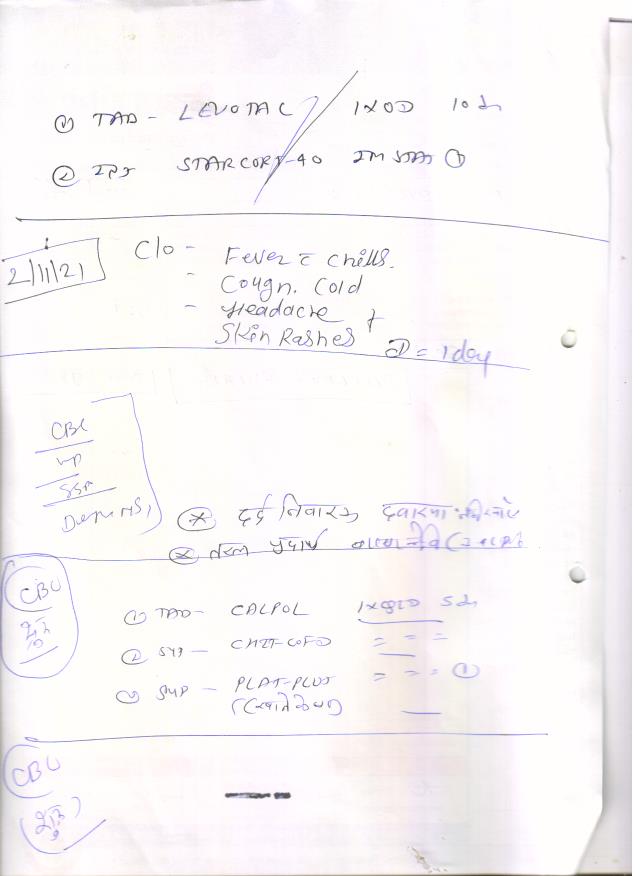 ① TAB - LEVOTAC 1XOD 10 d
② INJ STARCORT-40 IM STAT ①
2/11/21
C/o - Fever c̄ chills.
- Cough. Cold
- Headache +
Skin Rashes D = 1 day
CBC
MP
Dengue NS1
* दर्द निवारक
* तरल पदार्थ
CBC
① TAB- CALPOL 5 d
② SYP - = = =
③ SYP - PLAT-PLUS = = = ①
(खाने के बाद)
CBC